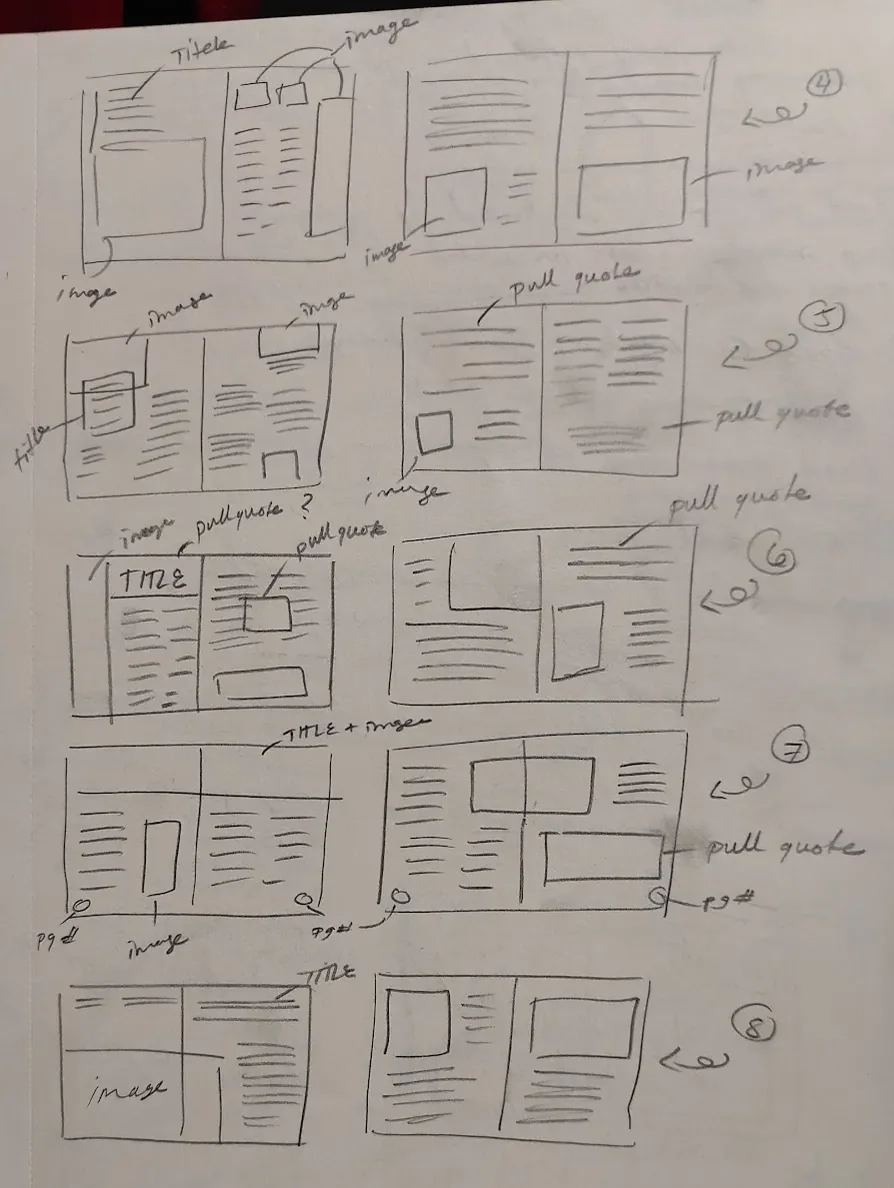 Titele
image
4
image
image
image
image
image
pull quote
5
title
pull quote
image
image
pullquote ?
pullquote
pull quote
6
TITLE
TITLE + image
7
pull quote
pg#
image
pg#
pg#
TITLE
8
image